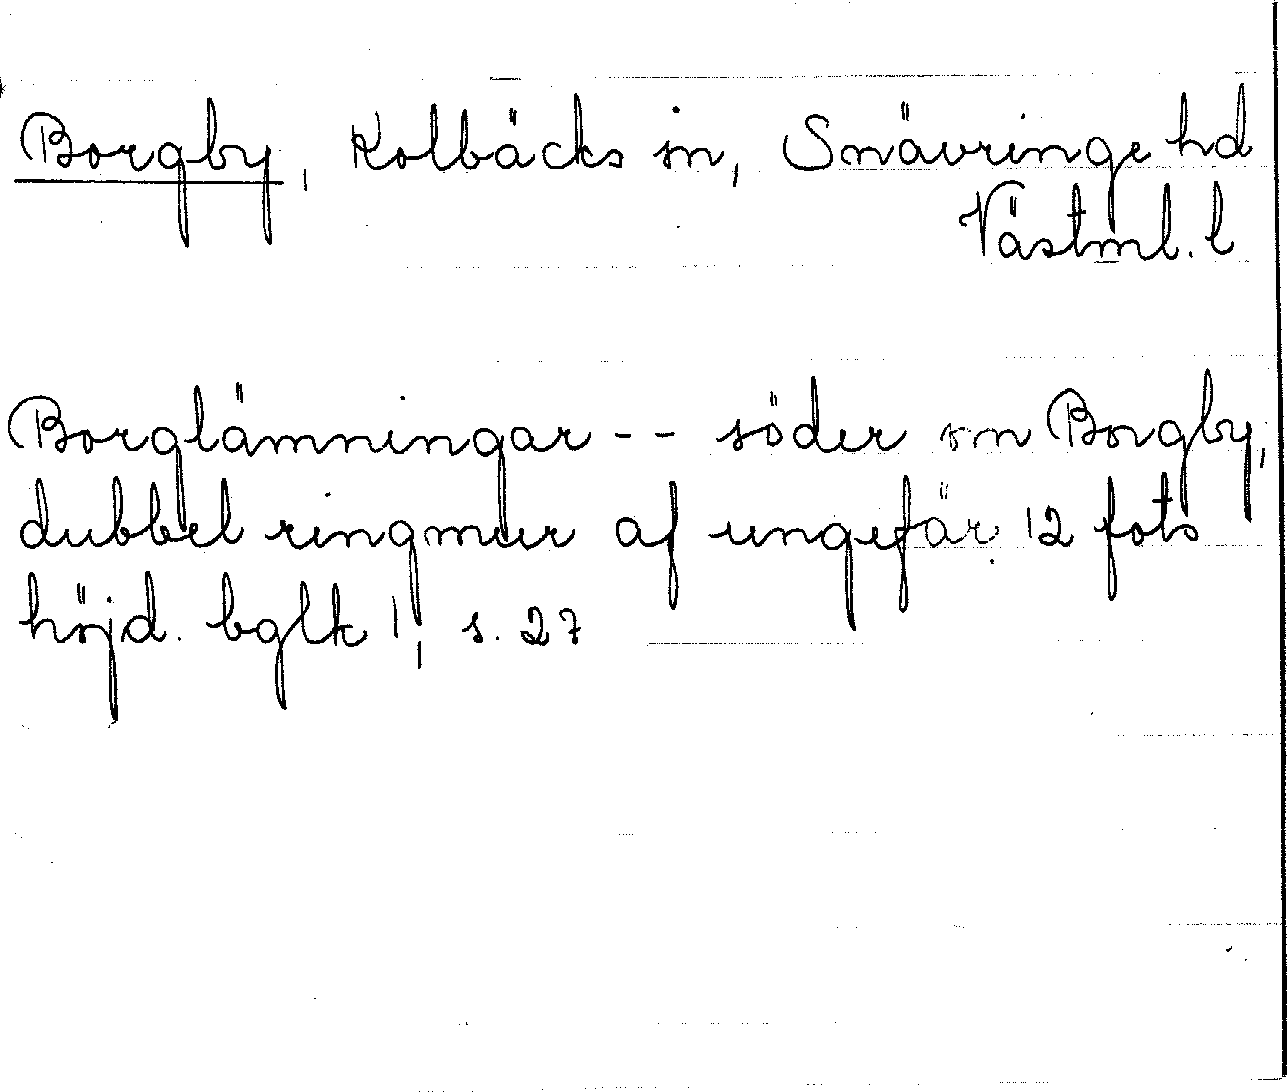 Borgby, Kolbäcks sn, Snävringe hd
Västml. l
Borglämningar -- söder om Borgby,
dubbel ringmur af ungefär 12 fots
höjd. bglk 1, s. 27